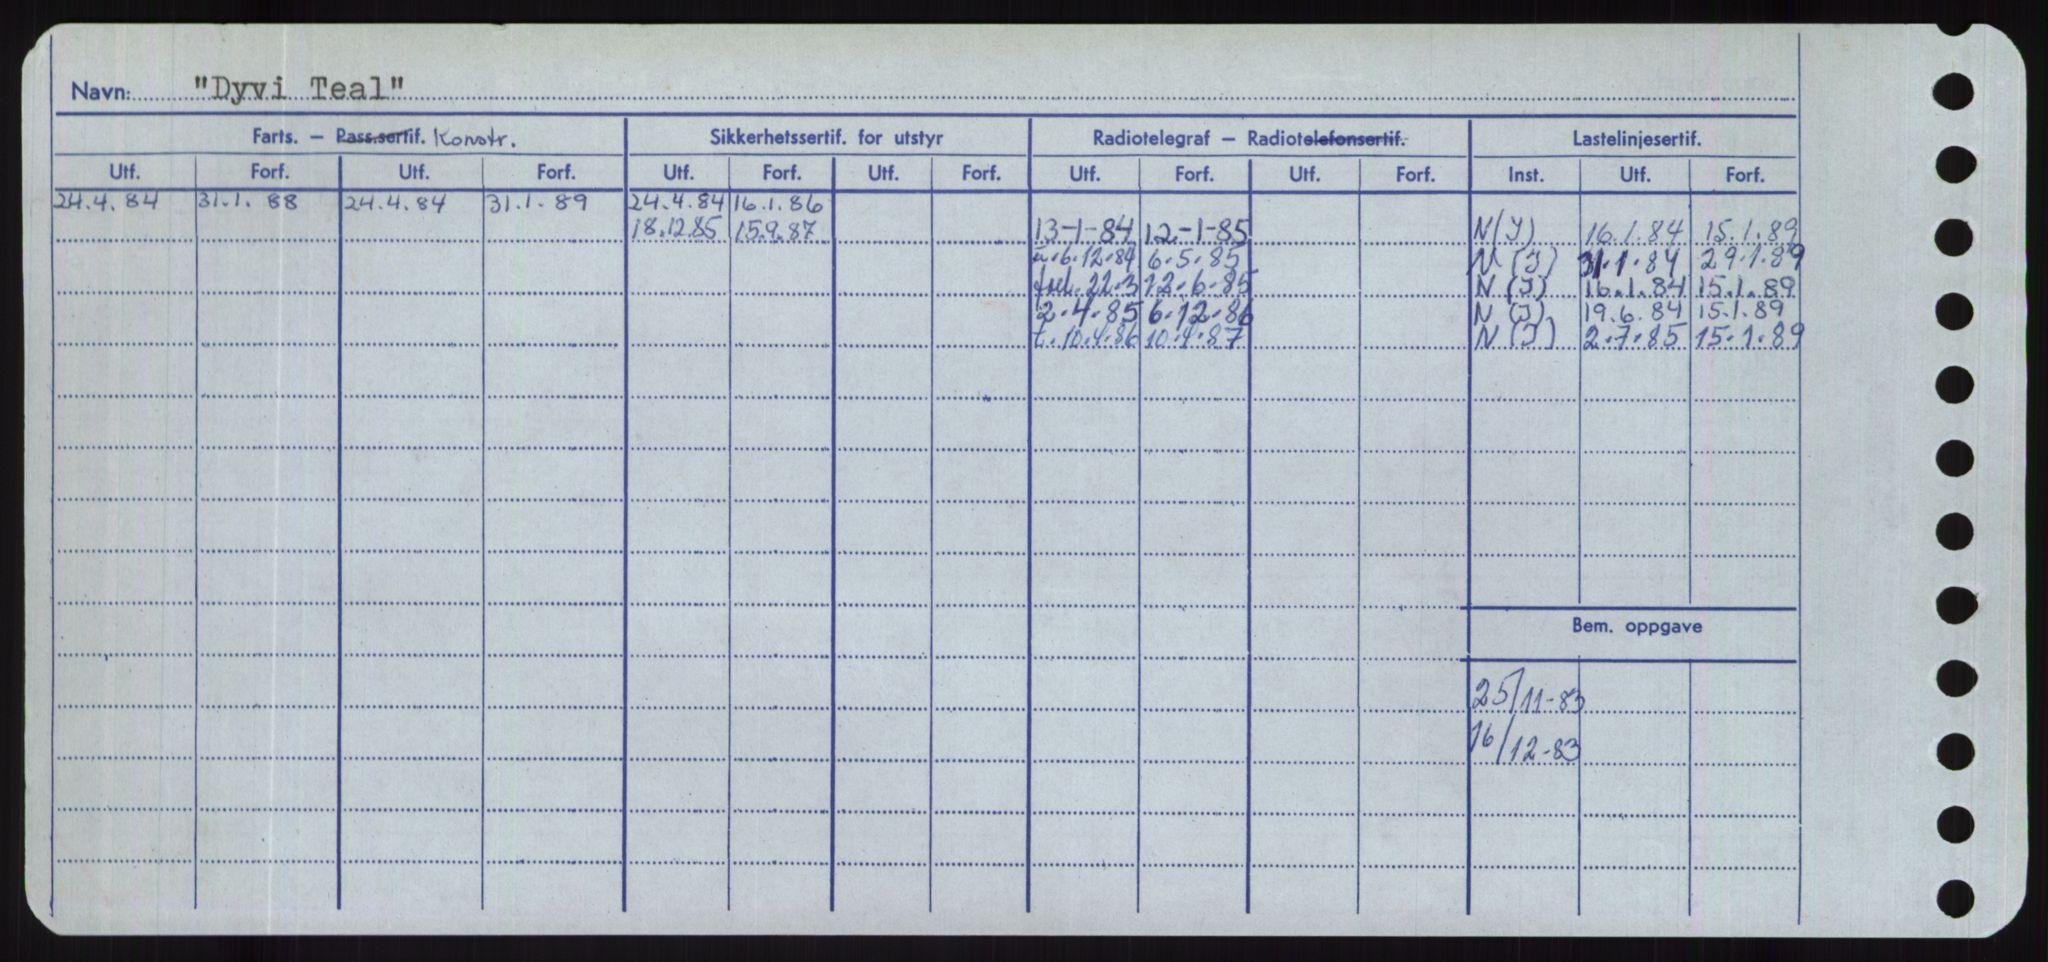 Navn: "Dyvi Teal"
Farts. — Pass.sertif. Konstr. Sikkerhetssertif. for utstyr Radiotelegraf — Radiotelefonsertif. Lastelinjesertif.
Utf. Forf. Utf. Forf. Utf. Forf. Utf. Forf. Utf. Forf. Utf. Forf. Inst. Utf. Forf.
24.4.84 31.1.88 24.4.84 31.1.89 24.4.84 16.1.86
18.12.85 15.9.87 13-1-84 12-1-85 N(I) 16.1.84 15.1.89
6.12.84 6.5.85 N(I) 31.1.84 29.1.89
forl. 22.3 12.6.85 N(I) 16.1.84 15.1.89
2.4.85 6.12.86 N(I) 19.6.84 15.1.89
t. 10.4.86 10.4.87 N(I) 2.7.85 15.1.89
Bem. oppgave
25/11-83
16/12-83